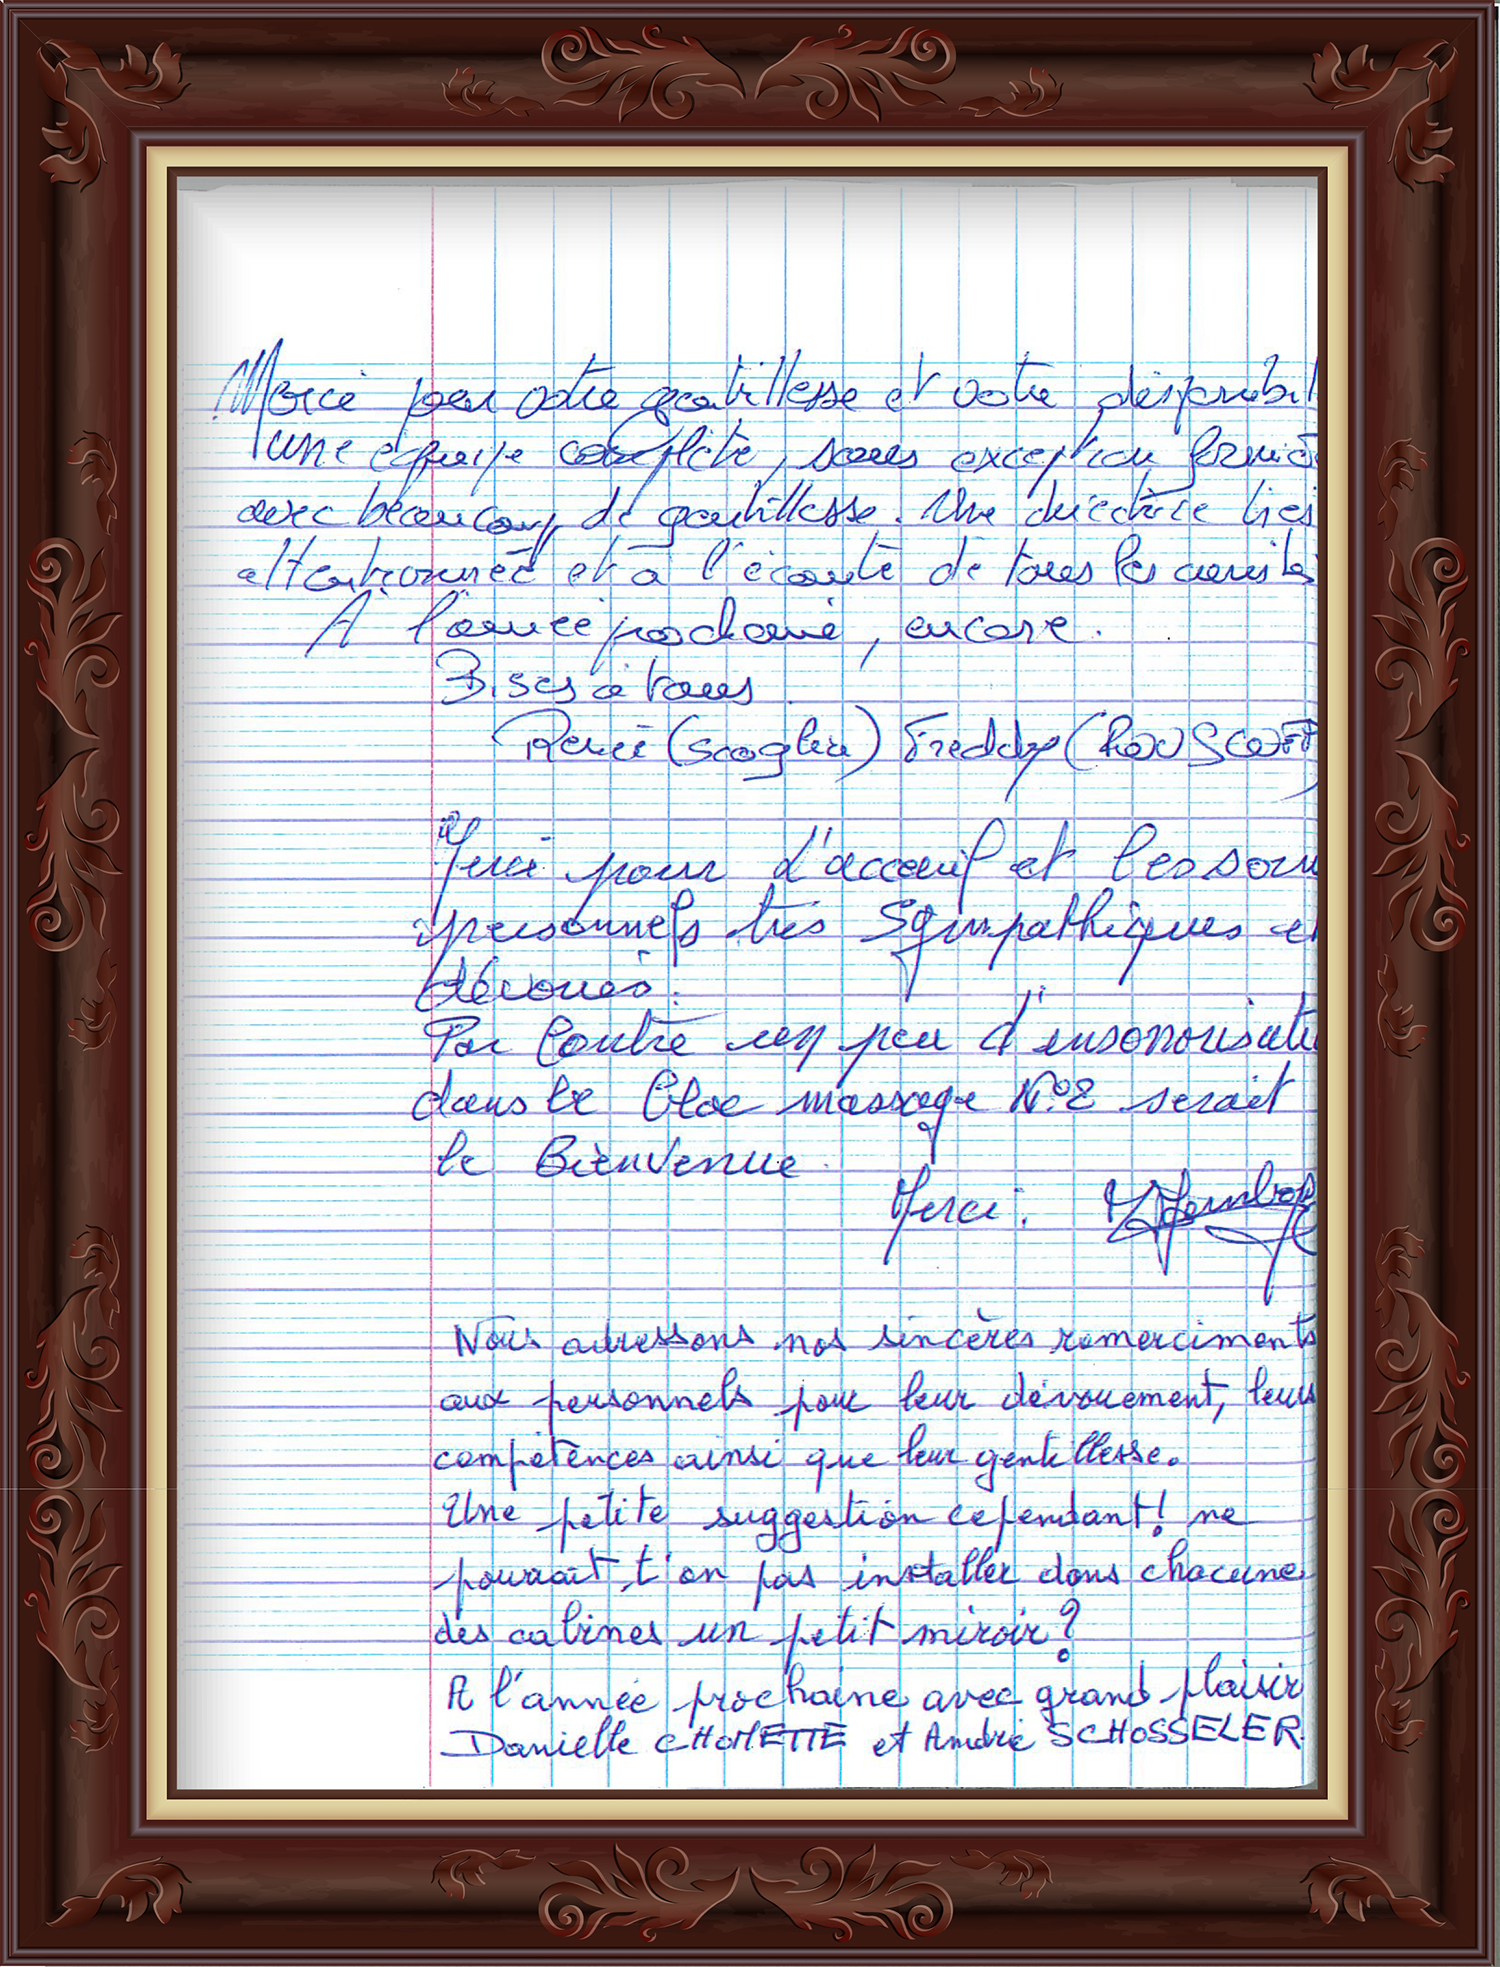 Merci pour votre gentillesse et votre disponibil
une équipe complète, sans exception formid
avec beaucoup de gentillesse. Une directrice très
attentionnée et à l'écoute de tous les curistes
A l'année prochaine, encore.
Bises à tous
Renée (Scoglia) Freddy (ROUSCOFF
Merci pour l'acceuil et les soins
personnels très Sympathiques et
dévoués.
Par Contre un peu d'insonorisati
dans le Bloc massage N°2 serait
le Bienvenue
Merci.
Nous adressons nos sincères remerciments
aux personnels pour leur dévouement, leurs
compétences ainsi que leur gentillesse.
Une petite suggestion cependant! ne
pourrait t'on pas installer dans chacune
des cabines un petit miroir?
A l'année prochaine avec grand plaisir
Danielle CHOMETTE et André SCHOSSELER